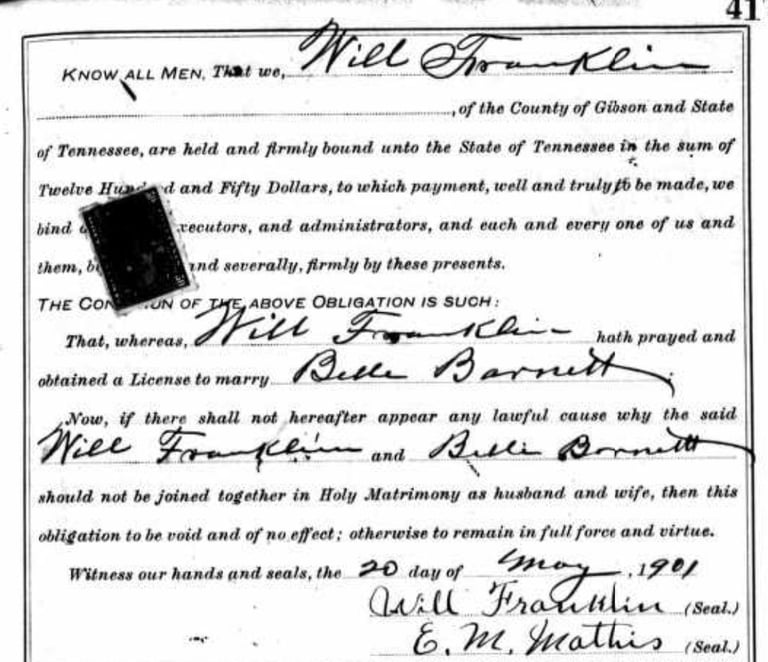 41
KNOW ALL MEN, That we, Will Franklin
, of the County of Gibson and State
of Tennessee, are held and firmly bound unto the State of Tennessee in the sum of
Twelve Hund d and Fifty Dollars, to which payment, well and truly to be made, we
bind xecutors, and administrators, and each and every one of us and
them, b and severally, firmly by these presents.
THE CON ION OF THE ABOVE OBLIGATION IS SUCH:
That, whereas, Will Franklin hath prayed and
obtained a License to marry Belle Barnett
Now, if there shall not hereafter appear any lawful cause why the said
Will Franklin and Belle Barnett
should not be joined together in Holy Matrimony as husband and wife, then this
obligation to be void and of no effect; otherwise to remain in full force and virtue.
Witness our hands and seals, the 20 day of May, 1901
Will Franklin (Seal.)
E. M. Mathis (Seal.)